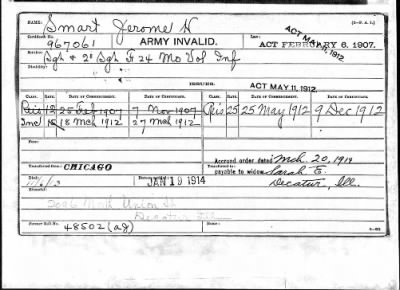 NAME: Smart Jerome H
Certificate No. 967061 ARMY INVALID. Law: ACT FEBRUARY 6, 1907. ACT MAY 11, 1912
Service: Sgt & 2d Sgt F 24 Mo Vol Inf
Disability:
ISSUES. ACT MAY 11, 1912
CLASS. RATE. DATE OF COMMENCEMENT. DATE OF CERTIFICATE. CLASS. RATE. DATE OF COMMENCEMENT. DATE OF CERTIFICATE.
12 25 Feb 1907 7 Nov 1907 Reis 25 25 May 1912 9 Dec 1912
Inc 18 Mch 1912 27 Mch 1912
Accrued order dated Mch. 20, 1914
Transferred from CHICAGO payable to widow Sarah E.
Died JAN 19 1914 Decatur, Ill.
Union St
Decatur Ill
Former Roll No. 48502 (ag)